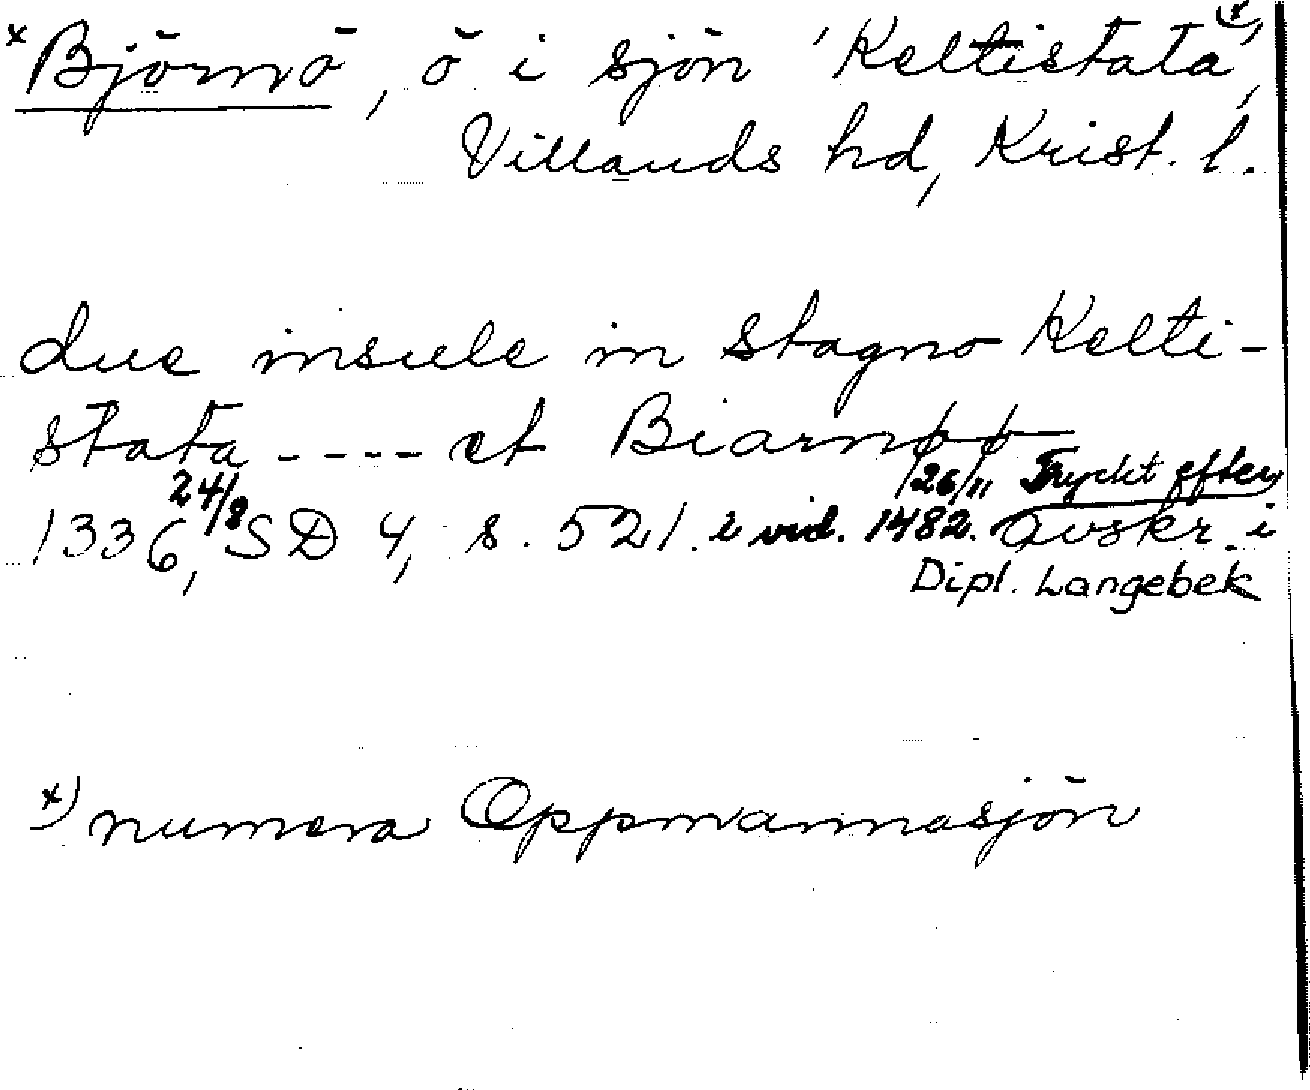 *Björnö, ö i sjön 'Keltistata'*),
Villands hd, Krist. l.
due insule in stagno Kelti-
stata ---- et Biarnøø
1336 24/8, SD 4, s. 521. i vid. 1482 26/11 Tryckt efter
avskr. i
Dipl. Langebek
*) numera Oppmannasjön